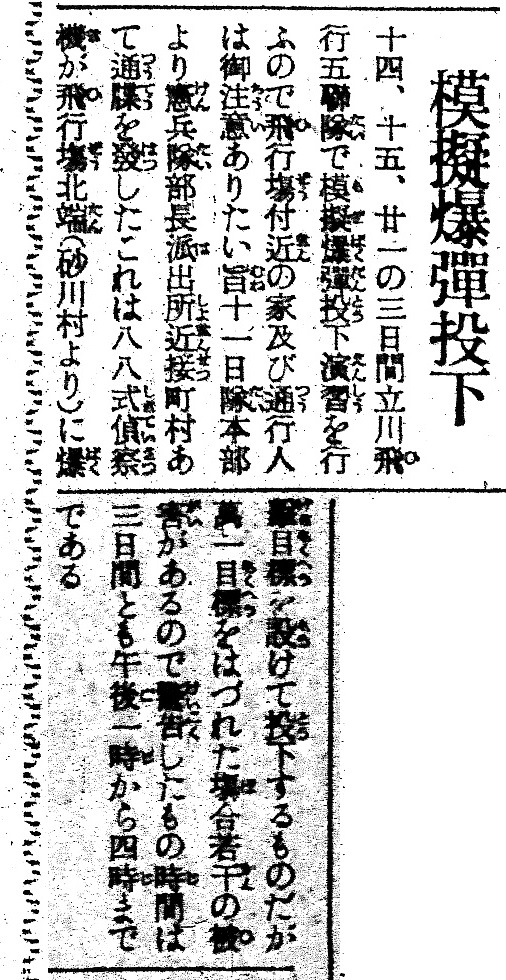 模擬爆彈投下
十四、十五、廿一の三日間立川飛
行五聯隊で模擬爆彈投下演習を行
ふので飛行場付近の家及び通行人
は御注意ありたい旨十一日隊本部
より憲兵隊部長派出所近接町村あ
て通牒を發したこれは八八式偵察
機が飛行場北端（砂川村より）に爆
擊目標を設けて投下するものだが
萬一目標をはづれた場合若干の被
害があるので警告したもの時間は
三日間とも午後一時から四時まで
である